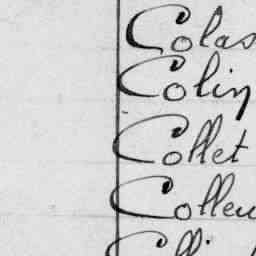 Colas
Colin
Collet
Colleu